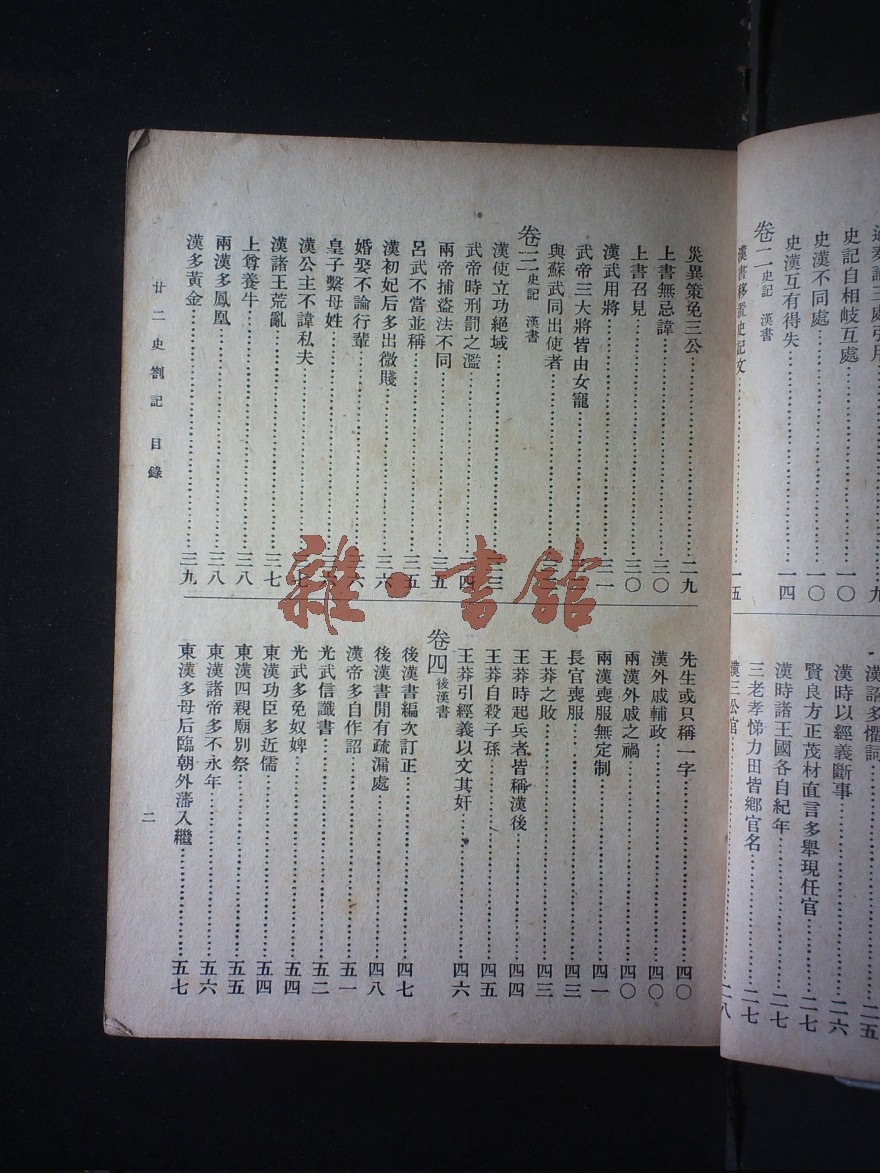 三處引用……九
史記自相岐互處……一〇
史漢不同處……一〇
史漢互有得失……一四
卷二 史記 漢書
漢書移置史記文……一五
漢詔多懼詞……二五
漢時以經義斷事……二六
賢良方正茂材直言多舉現任官……二七
漢時諸王國各自紀年……二七
三老孝悌力田皆鄉官名……二七
漢三公官……二八
災異策免三公……二九
上書無忌諱……三〇
上書召見……三〇
漢武用將……三一
武帝三大將皆由女寵……
與蘇武同出使者……
卷三 史記 漢書
漢使立功絕域……三
武帝時刑罰之濫……四
兩帝捕盜法不同……三五
呂武不當並稱……三五
漢初妃后多出微賤……三六
婚娶不論行輩……六
皇子繫母姓……
漢公主不諱私夫……七
漢諸王荒亂……三七
上尊養牛……三八
兩漢多鳳凰……三八
漢多黃金……三九
先生或只稱一字……四〇
漢外戚輔政……四〇
兩漢外戚之禍……四〇
兩漢喪服無定制……四一
長官喪服……四三
王莽之敗……四三
王莽時起兵者皆稱漢後……四四
王莽自殺子孫……四五
王莽引經義以文其奸……四六
卷四 後漢書
後漢書編次訂正……四七
後漢書閒有疏漏處……四八
漢帝多自作詔……五一
光武信讖書……五二
光武多免奴婢……五四
東漢功臣多近儒……五四
東漢四親廟別祭……五五
東漢諸帝多不永年……五六
東漢多母后臨朝外藩入繼……五七
廿二史劄記 目錄
二
雜·書館